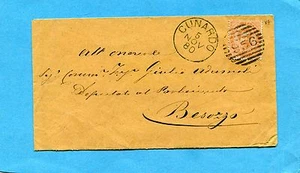 CUNARDO
5
NOV
80
All'onorevole
Sig. Comm. Ing. Giulio Adamoli
Deputato al Parlamento
Besozzo